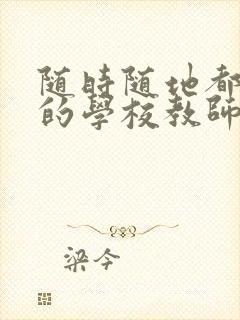 随時随地都
的學校教師
梁今